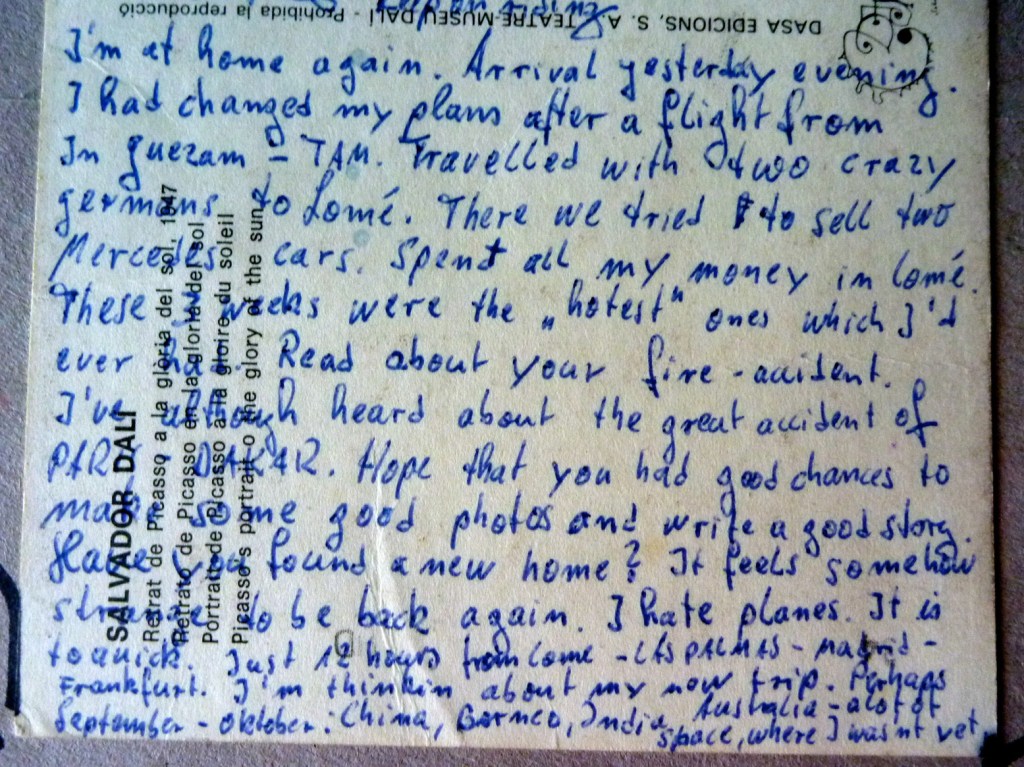 DASA EDICIONS, S. A. TEATRE-MUSEU DALÍ - Prohibida la reproducció
I'm at home again. Arrival yesterday evening.
I had changed my plans after a flight from
In guezam - TAM. Travelled with two crazy
germans to Lomé. There we tried to sell two
Mercedes cars. Spent all my money in Lomé.
These weeks were the „hotest" ones which I'd
ever had. Read about your fire-accident.
I've although heard about the great accident of
PARIS - DAKAR. Hope that you had good chances to
make some good photos and write a good story.
Have you found a new home? It feels somehow
strange to be back again. I hate planes. It is
to quick. Just 12 hours from Lome - LAS PALMAS - Madrid -
Frankfurt. I'm thinkin about my new trip. Perhaps
September - oktober: China, Borneo, India, Australia - a lot of
space, where I wasnt yet.
SALVADOR DALÍ
Retrat de Picasso a la glòria del sol. 1947
Retrato de Picasso en la gloria del sol
Portrait de Picasso a la gloire du soleil
Picasso's portrait o the glory of the sun